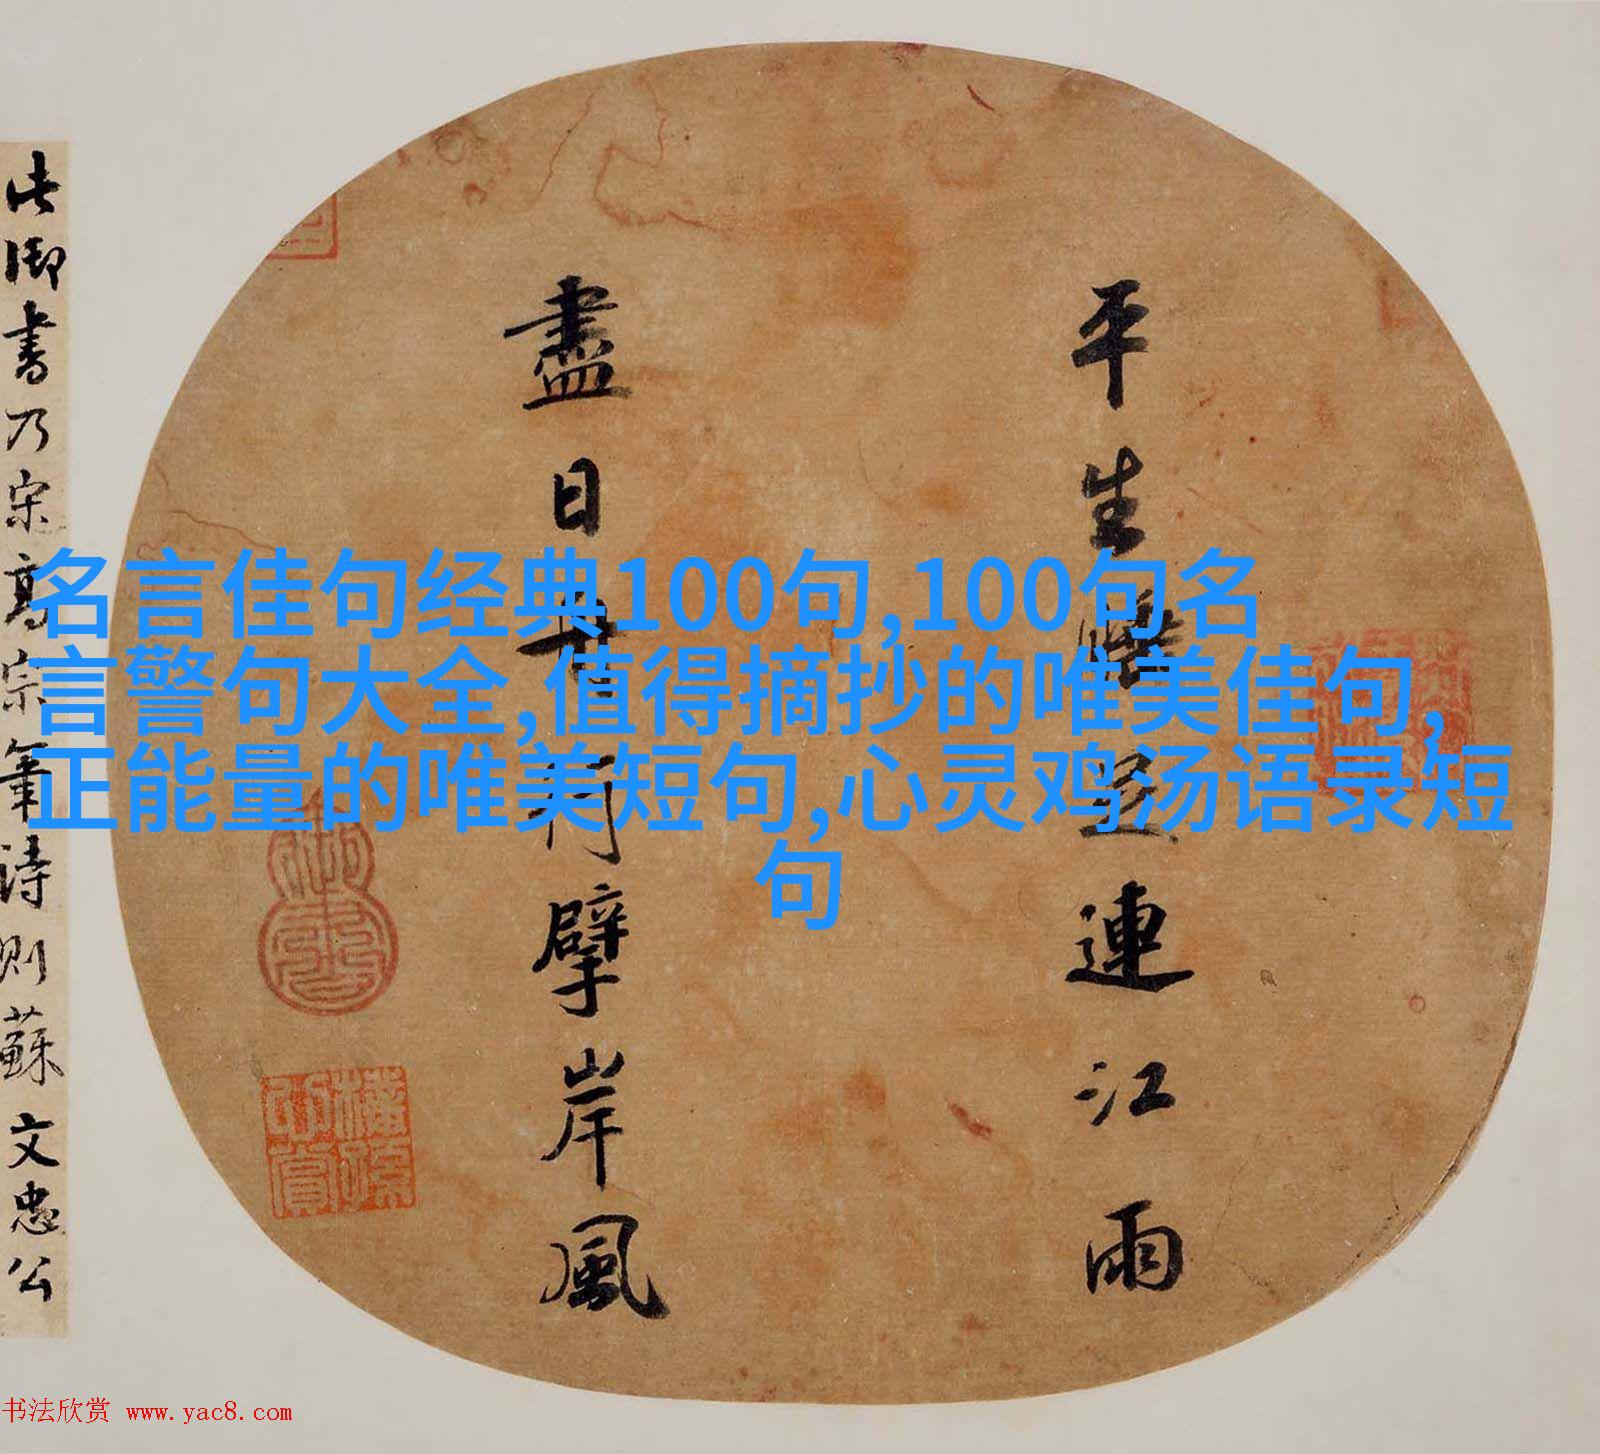 名言佳句经典100句,100句名
言警句大全,值得摘抄的唯美佳句,
正能量的唯美短句,心灵鸡汤语录短
句
平生睡足連江雨
盡日舟行擘岸風
此御書乃宋高宗筆詩則蘇文忠公
书法欣赏 www.yac8.com